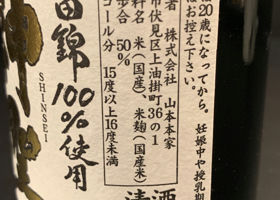 20歳になってから。妊娠中や授乳期
お控え下さい。
者 株式会社 山本本家
市伏見区上油掛町36の1
料名 米（国産）、米麹（国産米）
歩合 50%
コール分 15度以上16度未満
清酒
田錦100%使用
SHINSEI
神聖